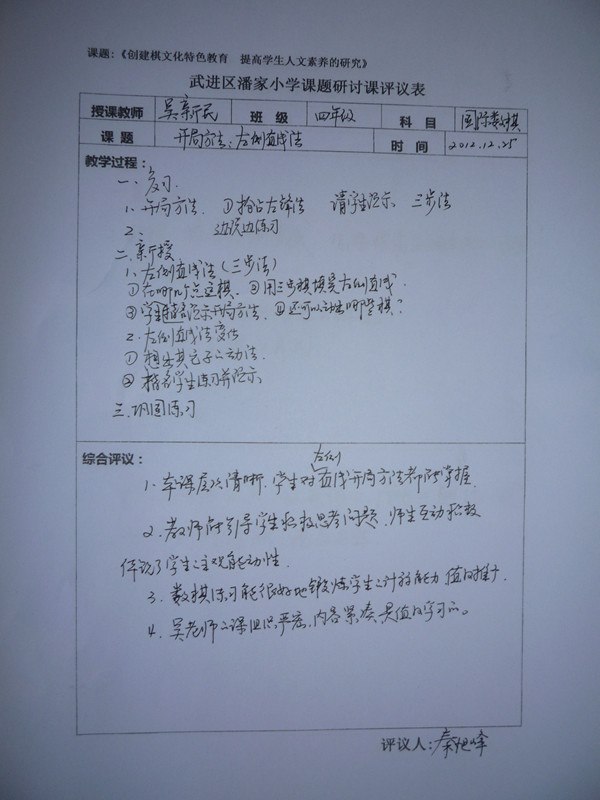 课题：《创建棋文化特色教育 提高学生人文素养的研究》
武进区潘家小学课题研讨课评议表
授课教师 吴新民 班 级 四年级 科 目 国际数棋
课 题 开局方法：左侧直线法 时 间 2012.12.25
教学过程：
一、复习
1、开局方法. ①抢占左锋法 请学生演示 三步法
2、 边说边练习
二、新授
1、左侧直线法（三步法）
①在哪个点运棋. ②用三步棋填是左侧直线.
③学生演示开局方法. ④还可以动出哪些棋？
2、左侧直线法变化
① 想出其它子之动法.
② 指名学生练习并演示
三、巩固练习
综合评议：
左侧
1、本课层次清晰. 学生对直线开局方法都能掌握.
2、教师能引导学生积极思考问题. 师生互动积极
体现了学生之主观能动性.
3、数棋练习能很好地锻炼学生之计算能力 值得推广.
4、吴老师之课组织严密, 内容紧凑是值得学习的。
评议人：秦旭峰